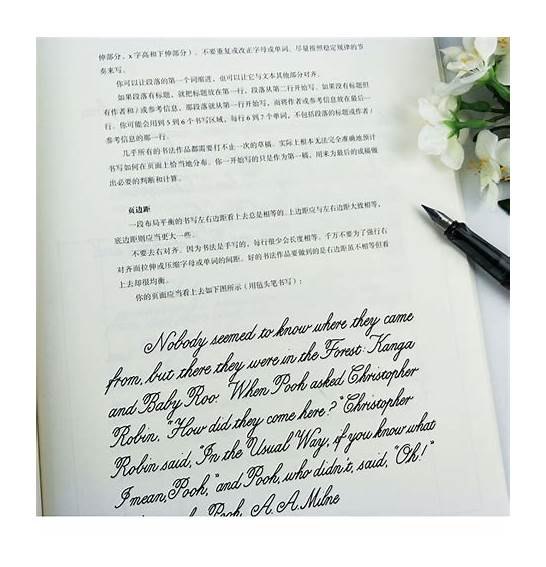 伸部分、x字高和下伸部分)。不要重复或改正字母或单词。尽量按照稳定规律的节
奏来写。
你可以让段落的第一个词缩进,也可以让它与文本其他部分对齐。
如果段落有标题,就把标题放在第一行,段落从第二行开始写。如果没有标题但
有作者和/或参考信息,那段落就从第一行开始写,而将作者或参考信息放在最后一
行。你可能会用到5到6个书写区域,每行6到7个单词,不包括段落的标题或作者/
参考信息的那一行。
几乎所有的书法作品都需要打不止一次的草稿。实际上根本无法完全准确地预计
书写如何在页面上恰当地分布。你一开始写的只是作为第一稿,用来为最后的成稿做
出必要的判断和计算。
页边距
一段布局平衡的书写左右边距看上去总是相等的。上边距应与左右边距大致相等,
底边距则应当更大一些。
不要去右对齐。因为书法是手写的,每行很少会长度相等。千万不要为了强行右
对齐而拉伸或压缩字母或单词的间距。好的书法作品要做到的是右边距虽不相等但看
上去却很均衡。
你的页面应当看上去如下图所示(用钝头笔书写):
Nobody seemed to know where they came
from, but there they were in the Forest: Kanga
and Baby Roo. When Pooh asked Christopher
Robin, "How did they come here?" Christopher
Robin said, "In the Usual Way, if you know what
I mean, Pooh," and Pooh, who didn't, said, "Oh!"
Pooh, A.A. Milne